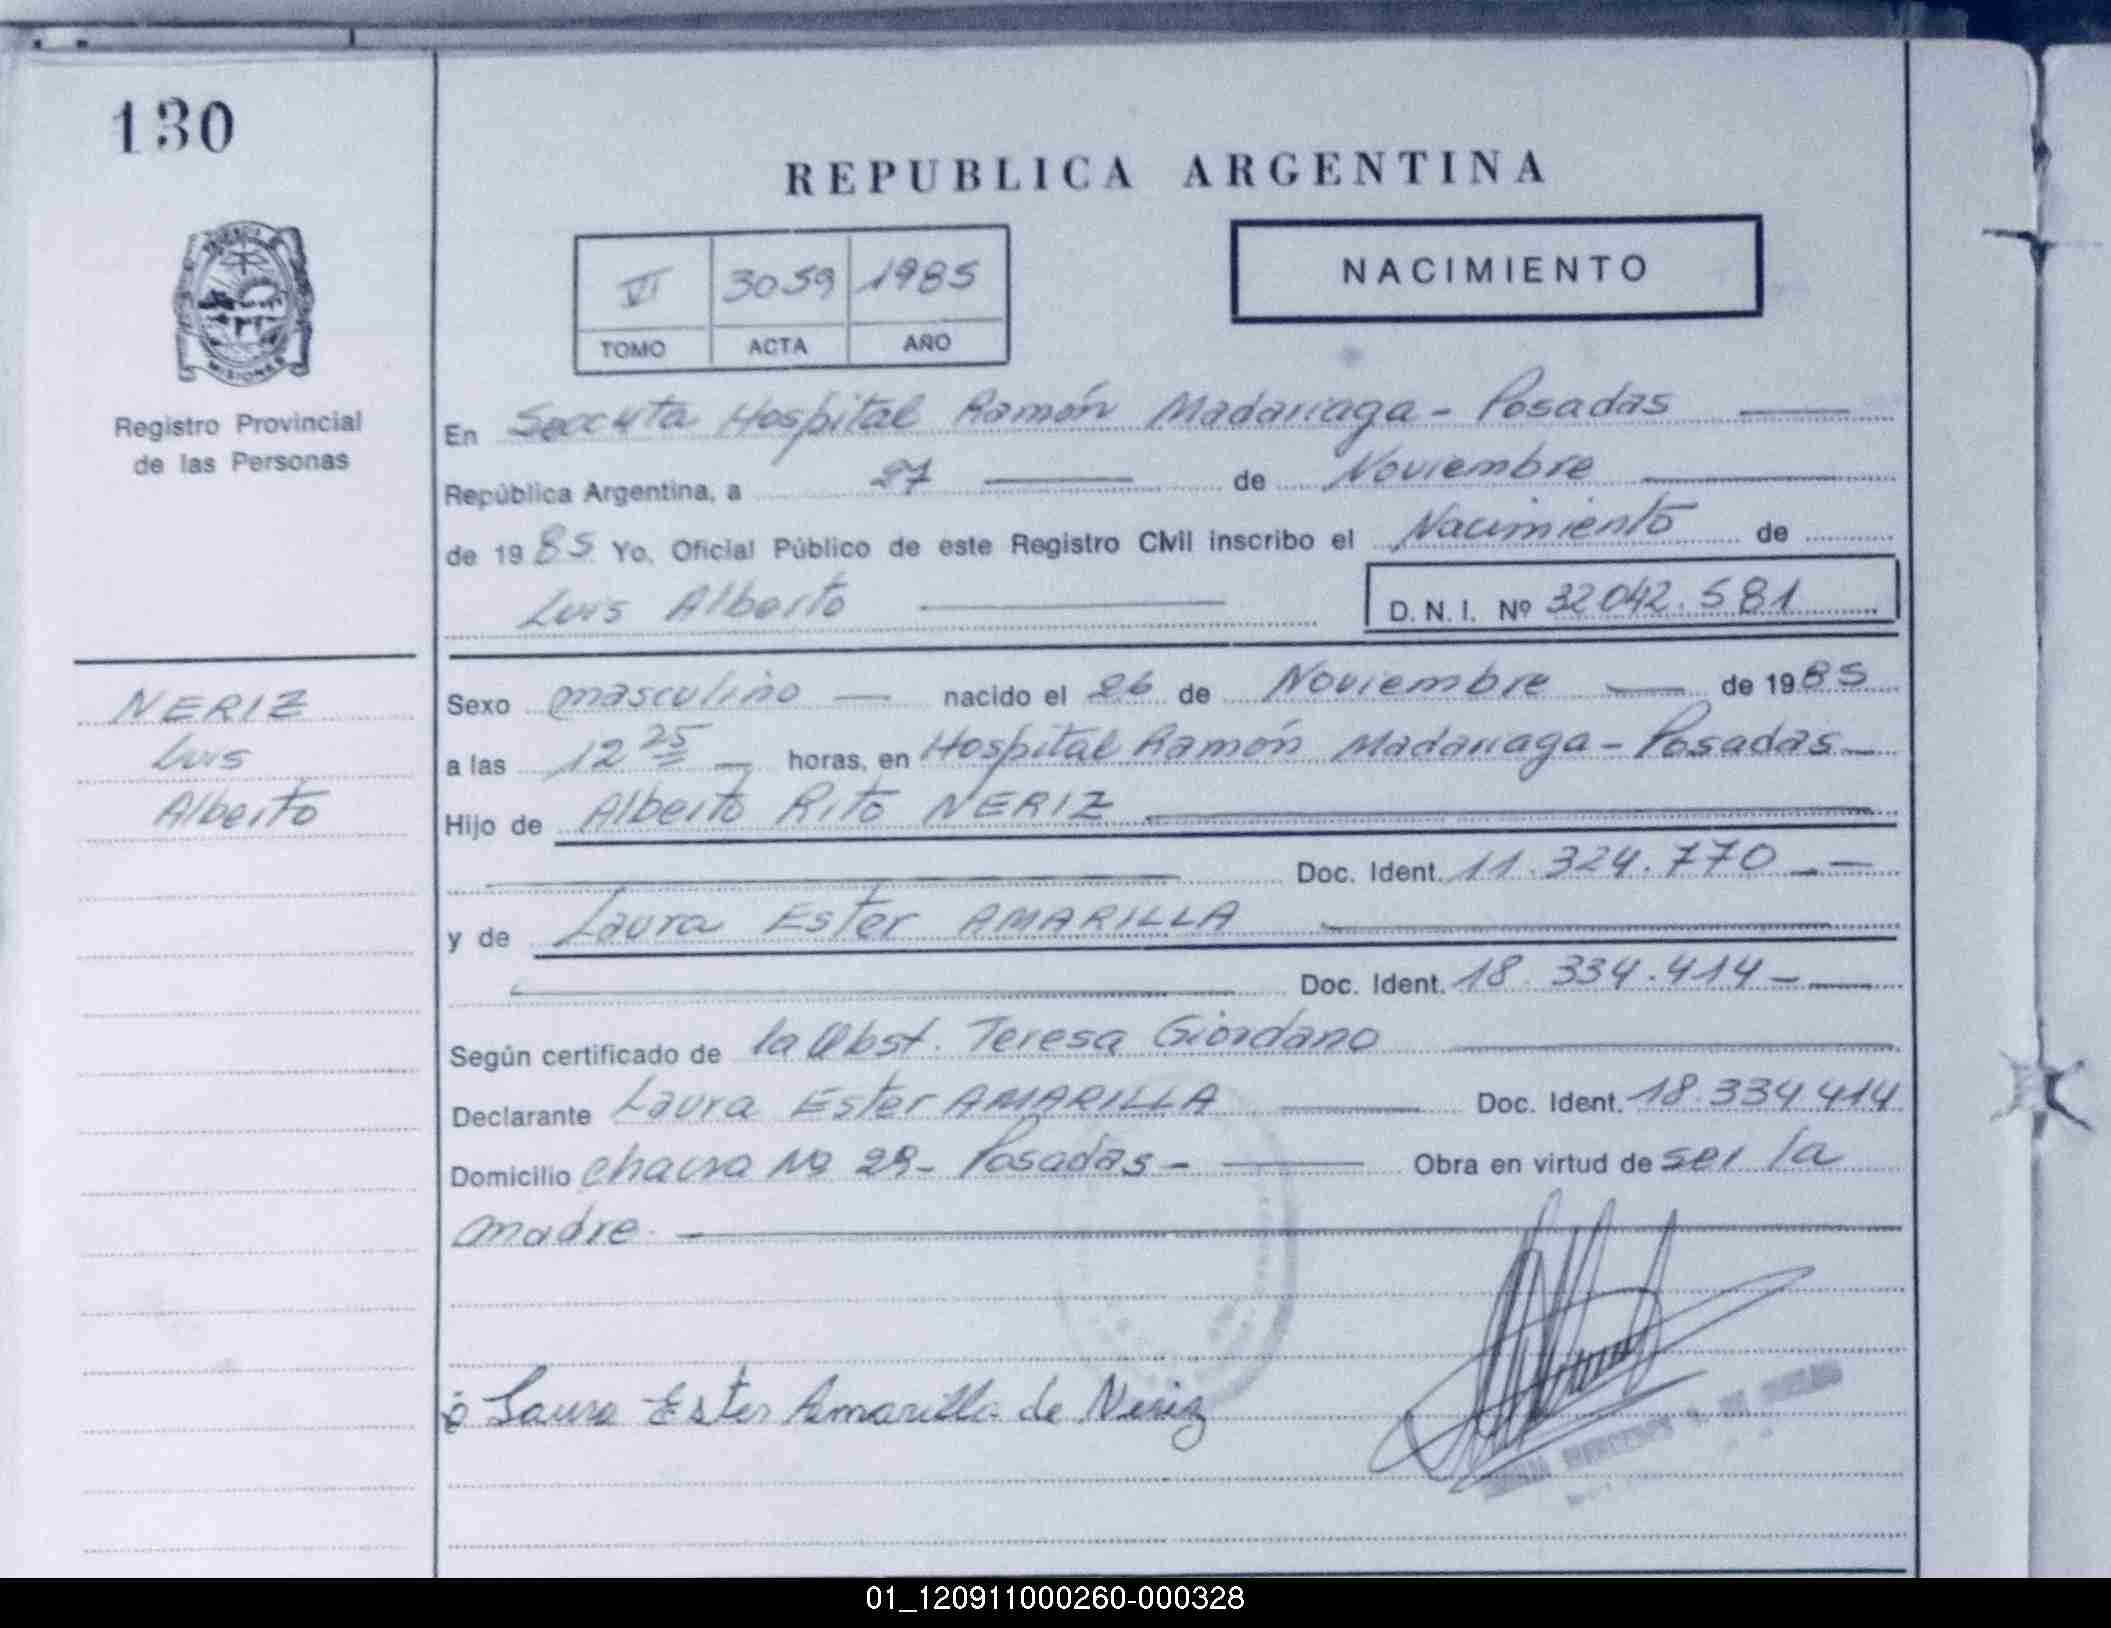 130
REPUBLICA ARGENTINA
VI 3059 1985
TOMO ACTA AÑO
NACIMIENTO
PROVINCIA DE
MISIONES
Registro Provincial
de las Personas
En Hospital Ramón Madariaga - Posadas
República Argentina, a 27 de Noviembre
de 1985 Yo, Oficial Público de este Registro Civil inscribo el Nacimiento de
Luis Alberto D. N. I. Nº 32042.581
NERIZ
Luis
Alberto
Sexo masculino nacido el 26 de Noviembre de 1985
a las 12 25 horas, en Hospital Ramón Madariaga - Posadas
Hijo de Alberto Rito NERIZ
Doc. Ident. 11.324.770
y de Laura Ester AMARILLA
Doc. Ident. 18.334.414
Según certificado de la Obst. Teresa Giordano
Declarante Laura Ester AMARILLA Doc. Ident. 18.334.414
Domicilio chacra Nº 29 - Posadas - Obra en virtud de ser la
madre.
Laura Ester Amarilla de Neriz
01_120911000260-000328